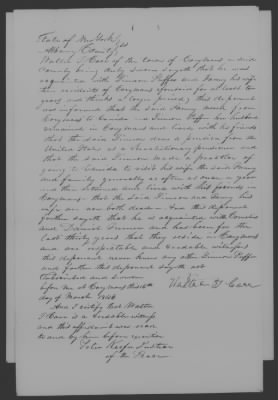 State of New York
Albany County ss
Walter T Carr of the town of Coeymans in said
county being duly sworn sayeth that he was
acquainted with Simon Peffer and Fanny his wife
then residents of Coeymans aforesaid for at least ten
years and thinks a longer period; this deponent
was informed that the said Fanny went from
Coeymans to Canada and Simon Peffer her husband
remained in Coeymans and lived with his friends
that the said Simon drew a pension from the
United States as a revolutionary pensioner and
that the said Simon made a practice of
going to Canada to visit his wife the said Fanny
and family generally as often as once a year
and then returned and lived with his friends in
Coeymans that the said Simon and Fanny his
wife are now both dead. And this deponent
further sayeth that he is acquainted with Cornelius
and Daniel and has been for the
last thirty years that they reside in Coeymans
and are respectable and credable witnesses
this deponent never knew any other Simon Peffer
and further this deponent sayeth not
Subscribed and sworn
before me at Coeymans this
day of March 1846
Walter T Carr
And I certify that Walter
T Carr is a credable witness
and this affidavit was sworn
to and by him before execution
Justice
of the Peace